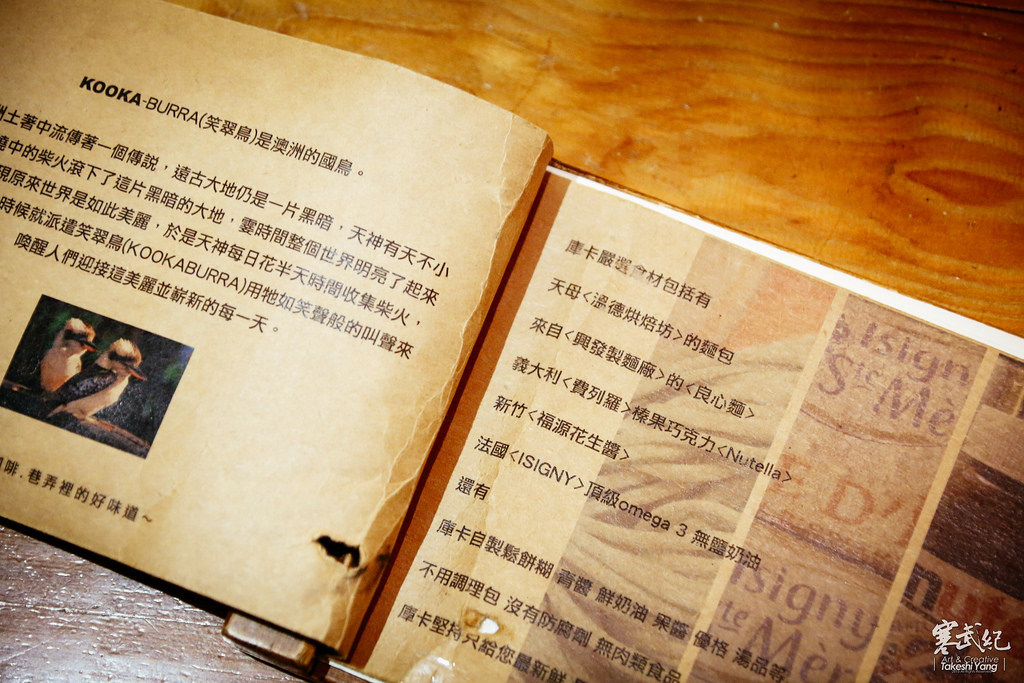 KOOKA-BURRA(笑翠鳥)是澳洲的國鳥。
洲土著中流傳著一個傳說，遠古大地仍是一片黑暗，天神有天不小
境中的柴火滾下了這片黑暗的大地，霎時間整個世界明亮了起來
現原來世界是如此美麗，於是天神每日花半天時間收集柴火，
時候就派遣笑翠鳥(KOOKABURRA)用牠如笑聲般的叫聲來
喚醒人們迎接這美麗並嶄新的每一天。
啡.巷弄裡的好味道～
庫卡嚴選食材包括有
天母<溫德烘焙坊>的麵包
來自<興發製麵廠>的<良心麵>
義大利<費列羅>榛果巧克力<Nutella>
新竹<福源花生醬>
法國<ISIGNY>頂級omega 3 無鹽奶油
還有
庫卡自製鬆餅糊 青醬 鮮奶油 果醬 優格 湯品等
不用調理包 沒有防腐劑 無肉類食品
庫卡堅持只給您最新鮮
Isign
Ste Mè
D'
Isigny
te Mèr
nut
寒武紀
Art & Creative
Takeshi Yang